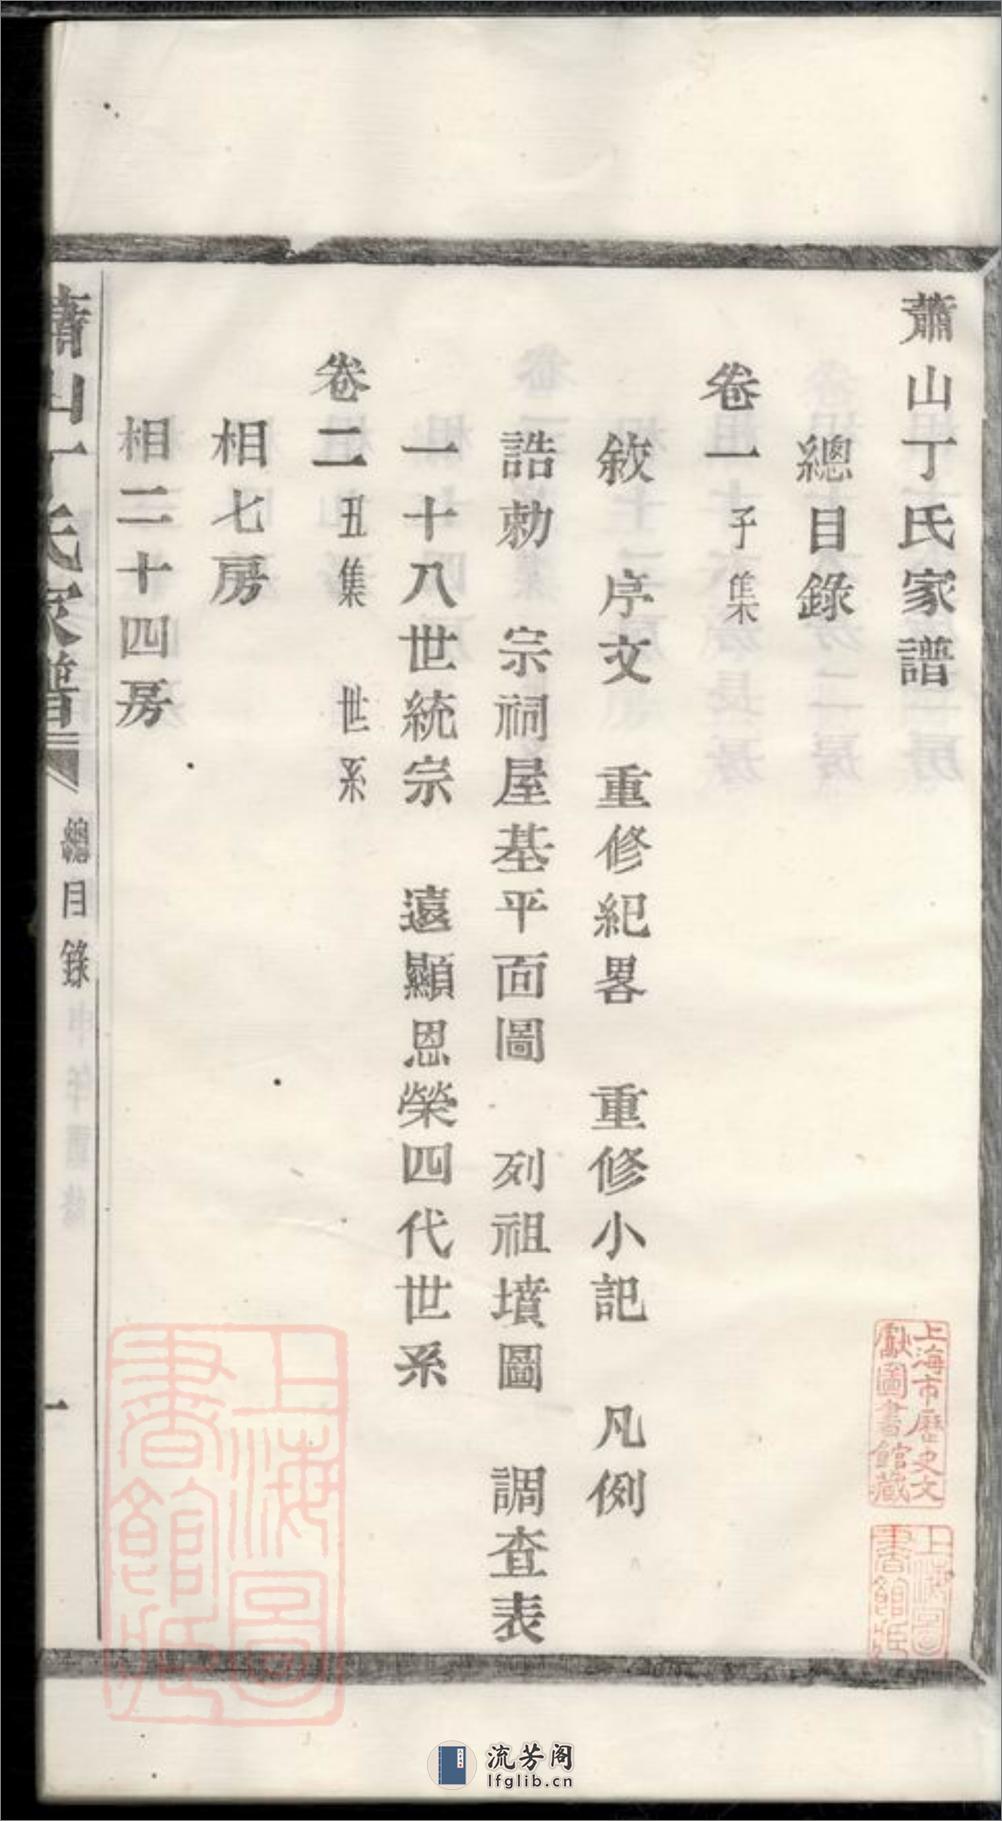 蕭山丁氏家譜
總目錄
卷一 子集
敘 序文 重修紀畧 重修小記 凡例
誥勅 宗祠屋基平面圖 列祖墳圖 調查表
一十八世統宗 遠顯恩榮四代世系
卷二 丑集 世系
相七房
相二十四房
蕭山丁氏家譜 總目錄 一
上海市歷史文
獻圖書館藏
上海圖
書館藏
上海圖
書館藏
流芳阁
lfglib.cn